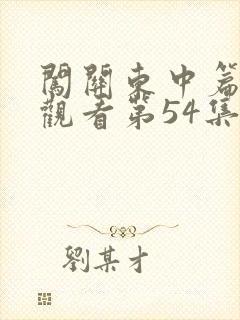 闖關東中篇
觀看第54集
劉某才